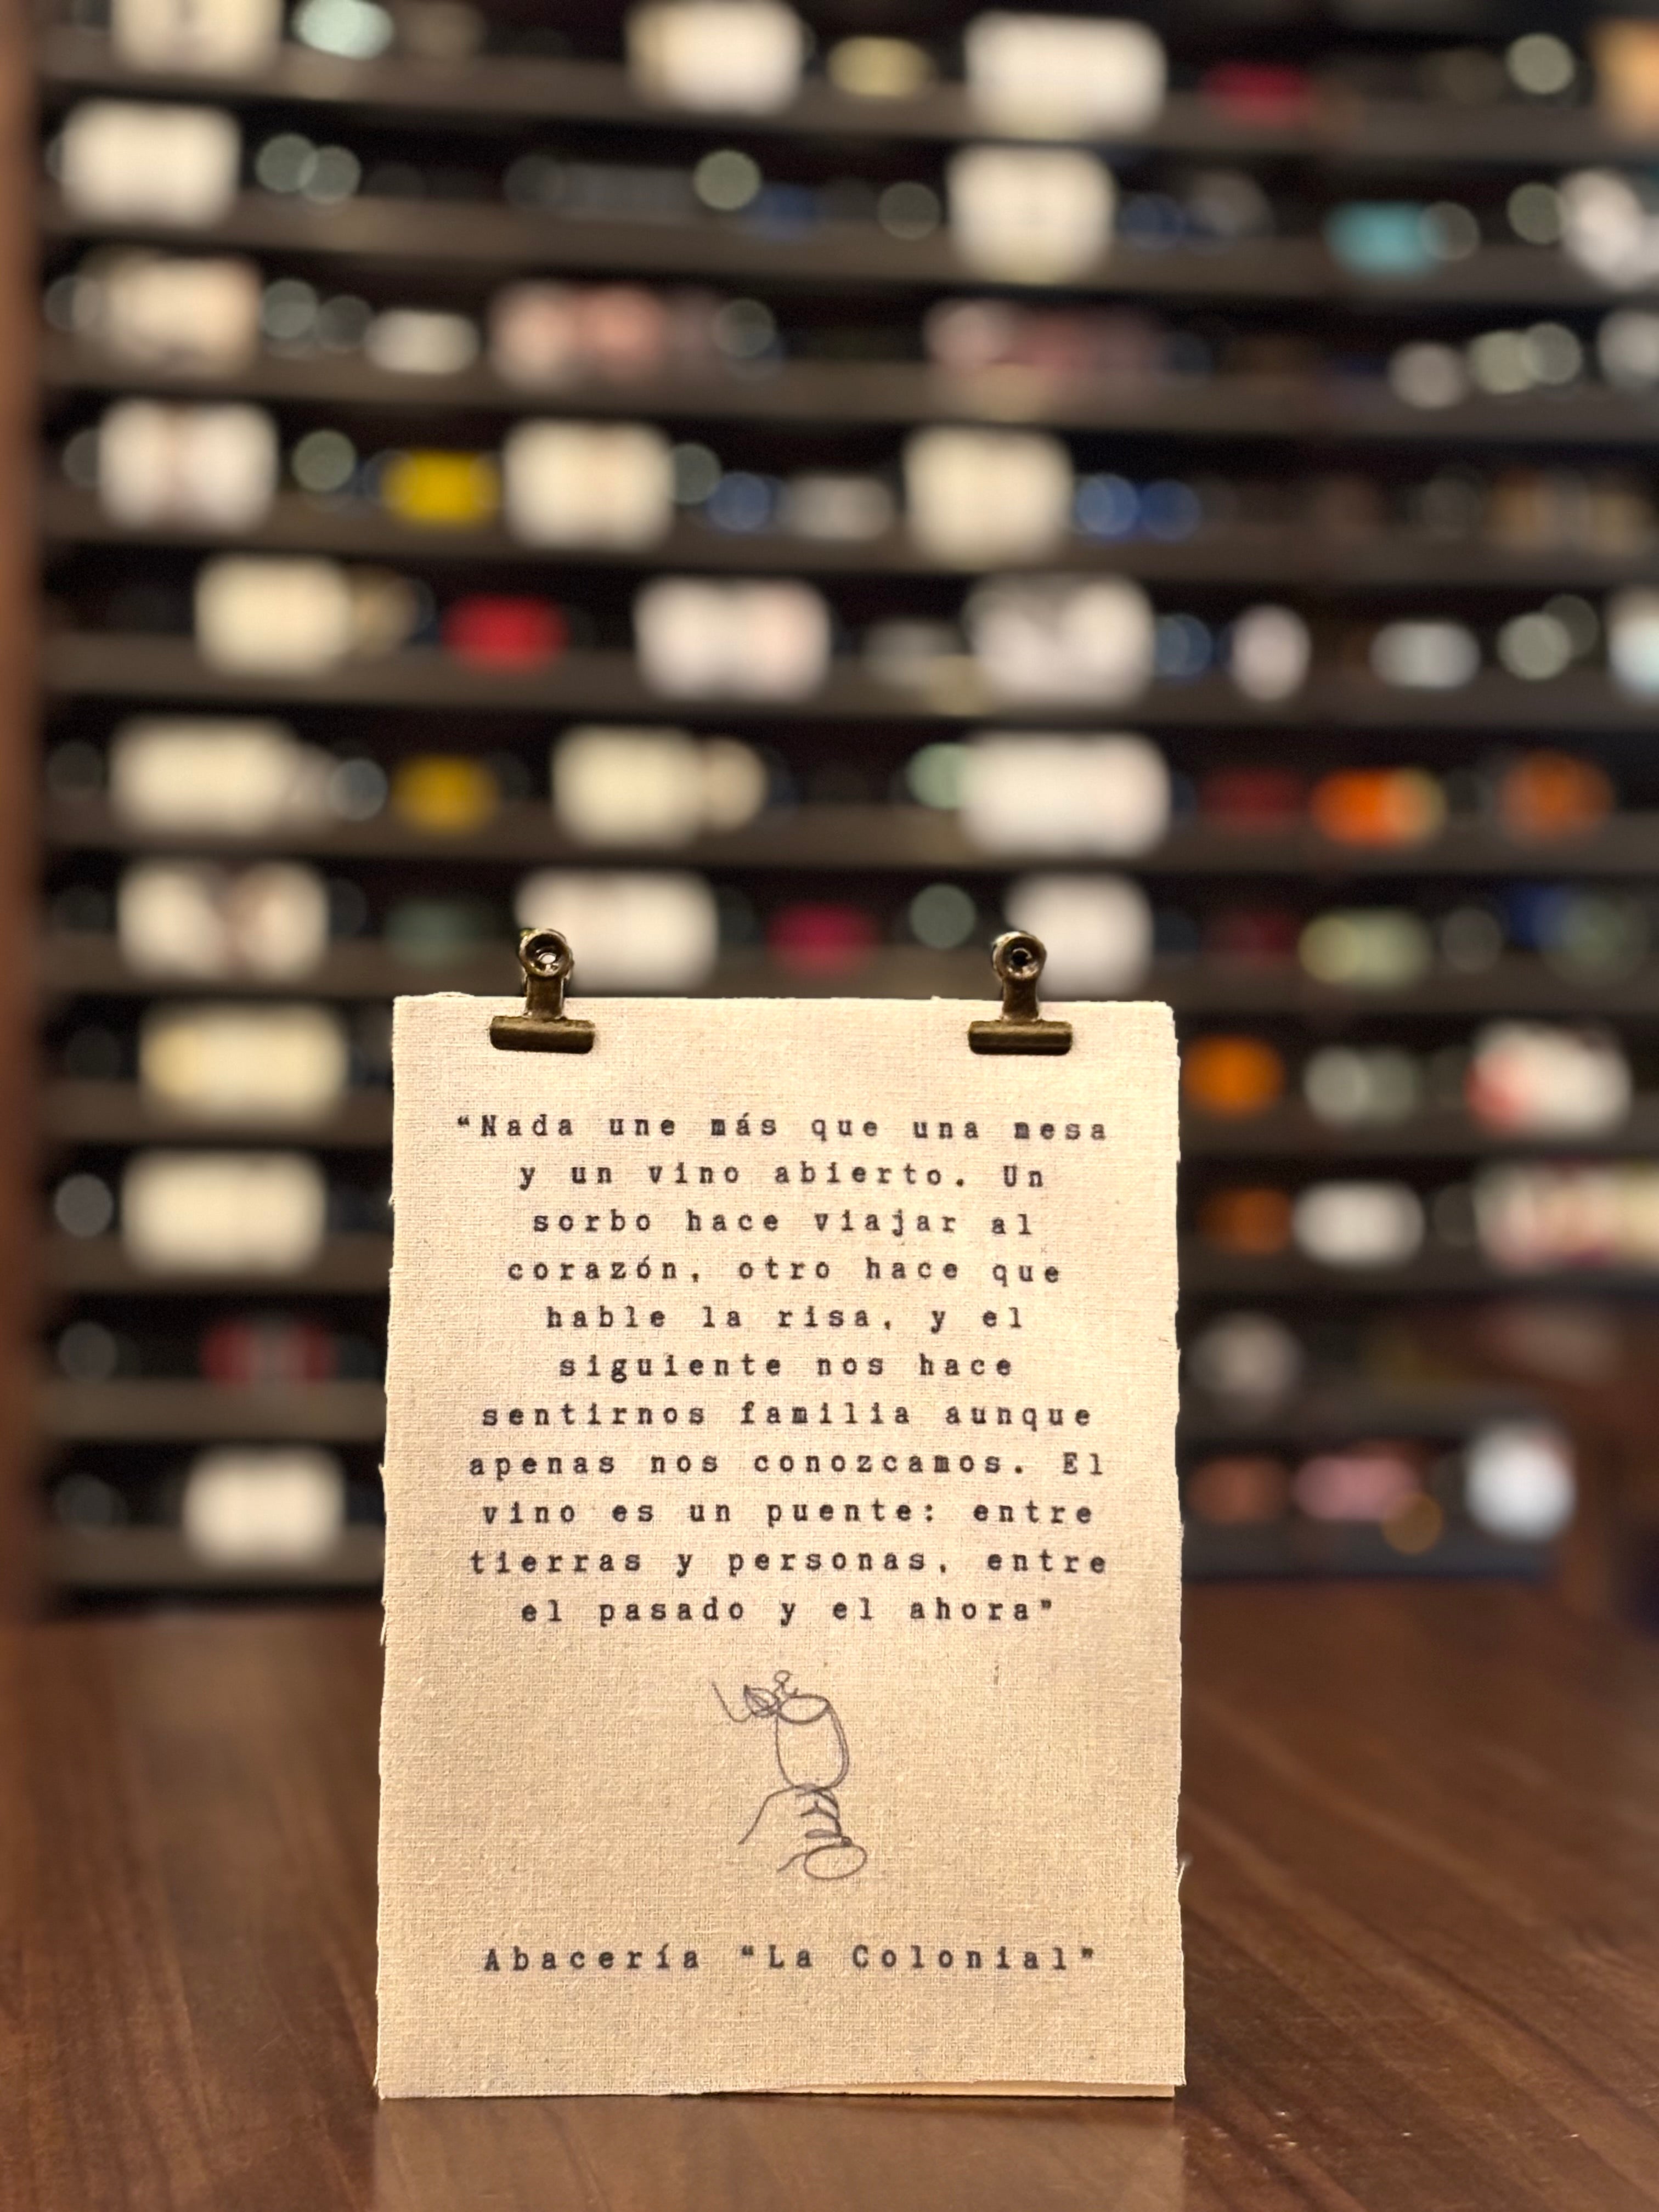 “Nada une más que una mesa
y un vino abierto. Un
sorbo hace viajar al
corazón, otro hace que
hable la risa, y el
siguiente nos hace
sentirnos familia aunque
apenas nos conozcamos. El
vino es un puente: entre
tierras y personas, entre
el pasado y el ahora”
Abacería “La Colonial”